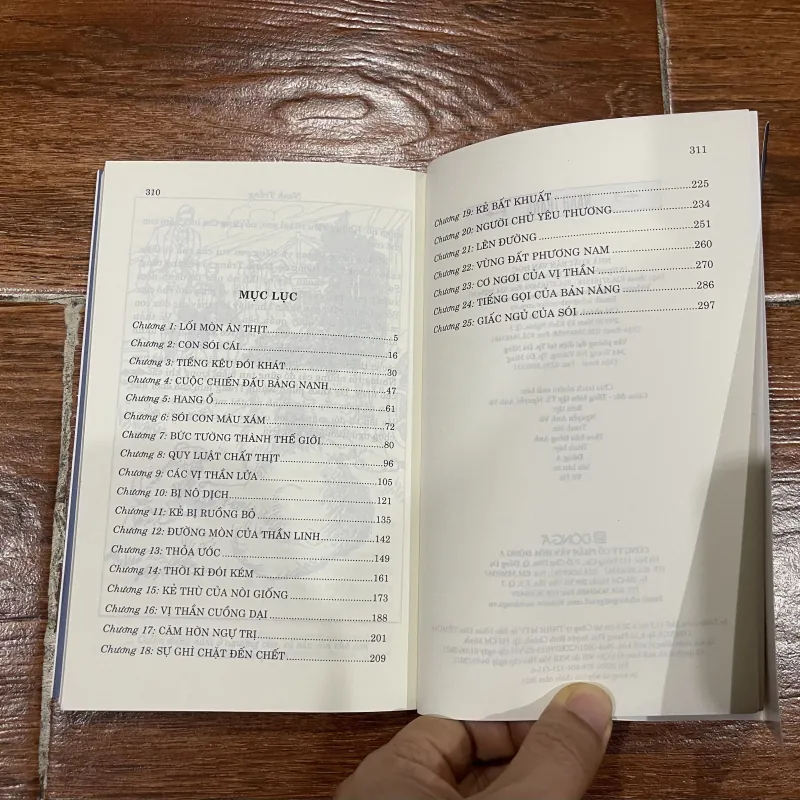 310
MỤC LỤC
Chương 1: LỐI MÒN ĂN THỊT.....5
Chương 2: CON SÓI CÁI.....16
Chương 3: TIẾNG KÊU ĐÓI KHÁT.....30
Chương 4: CUỘC CHIẾN ĐẤU BẰNG NANH.....47
Chương 5: HANG Ổ.....61
Chương 6: SÓI CON MÀU XÁM.....72
Chương 7: BỨC TƯỜNG THÀNH THẾ GIỚI.....80
Chương 8: QUY LUẬT CHẤT THỊT.....96
Chương 9: CÁC VỊ THẦN LỬA.....105
Chương 10: BỊ NÔ DỊCH.....121
Chương 11: KẺ BỊ RUỒNG BỎ.....135
Chương 12: ĐƯỜNG MÒN CỦA THẦN LINH.....142
Chương 13: THỎA ƯỚC.....149
Chương 14: THỜI KÌ ĐÓI KÉM.....161
Chương 15: KẺ THÙ CỦA NÒI GIỐNG.....173
Chương 16: VỊ THẦN CUỒNG DẠI.....188
Chương 17: CĂM HỜN NGỰ TRỊ.....201
Chương 18: SỰ GHÌ CHẶT ĐẾN CHẾT.....209
311
Chương 19: KẺ BẤT KHUẤT.....225
Chương 20: NGƯỜI CHỦ YÊU THƯƠNG.....234
Chương 21: LÊN ĐƯỜNG.....251
Chương 22: VÙNG ĐẤT PHƯƠNG NAM.....260
Chương 23: CƠ NGƠI CỦA VỊ THẦN.....270
Chương 24: TIẾNG GỌI CỦA BẢN NĂNG.....286
Chương 25: GIẤC NGỦ CỦA SÓI.....297